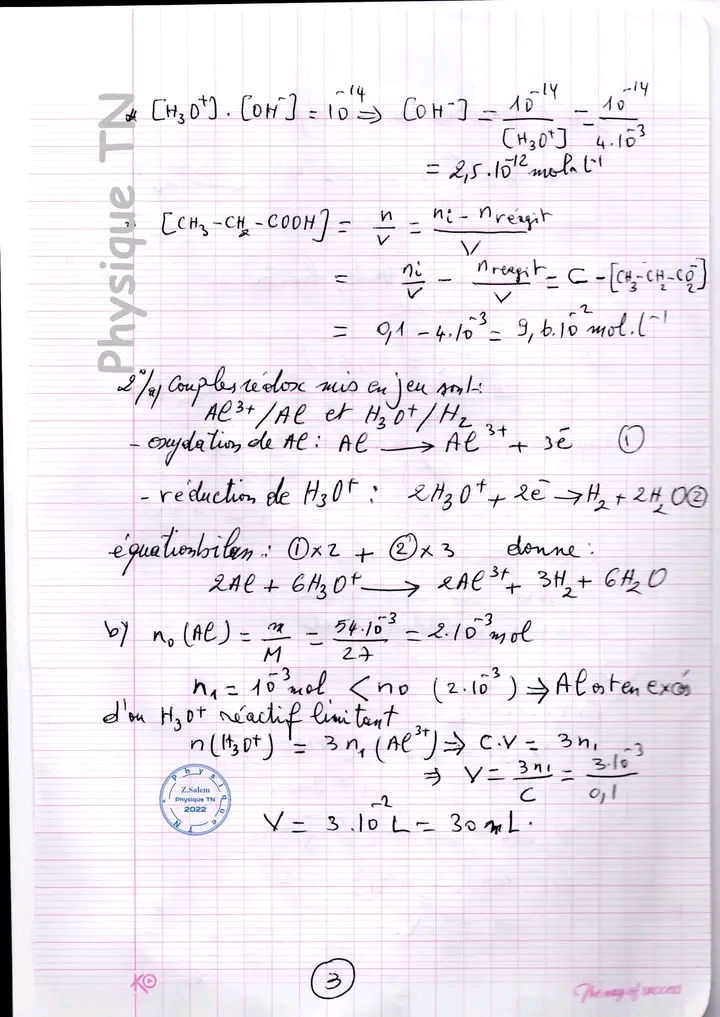 * [H₃O⁺].[OH⁻] = 10⁻¹⁴ ⇒ [OH⁻] = 10⁻¹⁴/[H₃O⁺] = 10⁻¹⁴/4.10⁻³
= 2,5.10⁻¹² mol.L⁻¹
[CH₃-CH₂-COOH] = n/V = (ni - nréagit)/V
= ni/V - nréagit/V = C - [CH₃-CH₂-CO₂⁻]
= 0,1 - 4.10⁻³ = 9,6.10⁻² mol.L⁻¹
2°/a) Couples rédox mis en jeu sont:
Al³⁺/Al et H₃O⁺/H₂
- oxydation de Al : Al → Al³⁺ + 3é ①
- réduction de H₃O⁺ : 2H₃O⁺ + 2é → H₂ + 2H₂O ②
équation bilan : ①x2 + ②x3 donne :
2Al + 6H₃O⁺ → 2Al³⁺ + 3H₂ + 6H₂O
b) n₀(Al) = m/M = 54.10⁻³/27 = 2.10⁻³ mol
n₁ = 10⁻³ mol < n₀ (2.10⁻³) ⇒ Al est en excés
d'ou H₃O⁺ réactif limitant
n(H₃O⁺) = 3n₁(Al³⁺) ⇒ C.V = 3n₁
⇒ V = 3n₁/C = 3.10⁻³/0,1
V = 3.10⁻² L = 30 mL.
Physique TN
Physique TN
Z.Salem
Physique TN
2022
3
The way of success